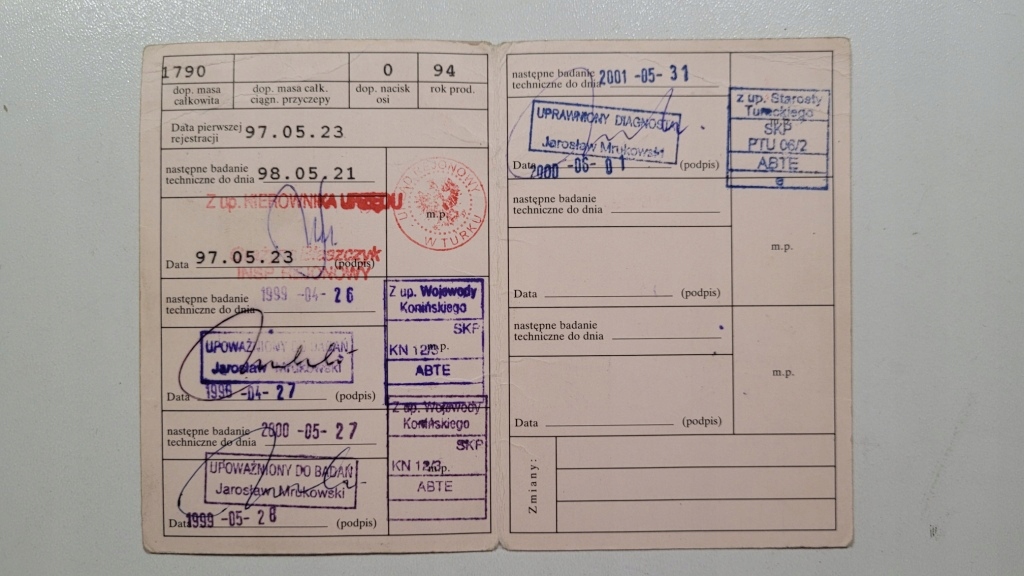 1790
0
94
dop. masa całkowita
dop. masa całk. ciągn. przyczepy
dop. nacisk osi
rok prod.
Data pierwszej rejestracji 97.05.23
następne badanie
techniczne do dnia 98.05.21
Z up. KIEROWNIKA URZĘDU
URZĄD REJONOWY
W TURKU
m.p.
Data 97.05.23 (podpis)
INSP. REJONOWY
następne badanie
techniczne do dnia 1999-04-26
Z up. Wojewody
Konińskiego
SKP
KN 12/3
m.p.
ABTE
UPOWAŻNIONY DO BADAŃ
Jarosław Mrukowski
Data 1998-04-27 (podpis)
następne badanie
techniczne do dnia 2000-05-27
Z up. Wojewody
Konińskiego
SKP
KN 12/3
m.p.
ABTE
UPOWAŻNIONY DO BADAŃ
Jarosław Mrukowski
Data 1999-05-28 (podpis)
następne badanie
techniczne do dnia 2001-05-31
z up. Starosty
Tureckiego
m.p.
SKP
PTU 06/2
ABTE
UPRAWNIONY DIAGNOSTA
Jarosław Mrukowski
Data 2000-06-01 (podpis)
następne badanie
techniczne do dnia
m.p.
Data (podpis)
następne badanie
techniczne do dnia
m.p.
Data (podpis)
Zmiany: